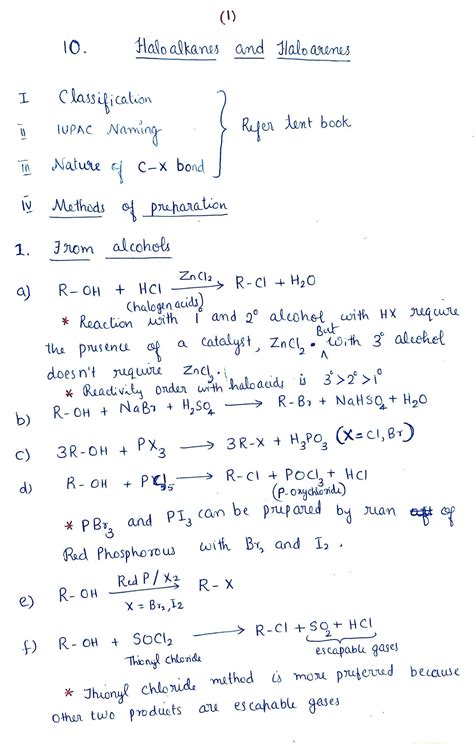 (1)
10. Haloalkanes and Haloarenes
I Classification
II IUPAC Naming
III Nature of C-X bond
Refer text book
IV Methods of preparation
1. From alcohols
a) R-OH + HCl →(ZnCl2) R-Cl + H2O
(halogen acids)
* Reaction with 1° and 2° alcohol with HX require
the presence of a catalyst, ZnCl2. But with 3° alcohol
doesn't require ZnCl2.
* Reactivity order with haloacids is 3°>2°>1°
b) R-OH + NaBr + H2SO4 → R-Br + NaHSO4 + H2O
c) 3R-OH + PX3 → 3R-X + H3PO3 (X=Cl, Br)
d) R-OH + PCl5 → R-Cl + POCl3 + HCl
(P-oxychloride)
* PBr3 and PI3 can be prepared by rxan of
Red Phosphorous with Br2 and I2.
e) R-OH →(Red P/X2, X=Br2, I2) R-X
f) R-OH + SOCl2 → R-Cl + SO2 + HCl
Thionyl chloride escapable gases
* Thionyl chloride method is more preferred because
other two products are escapable gases